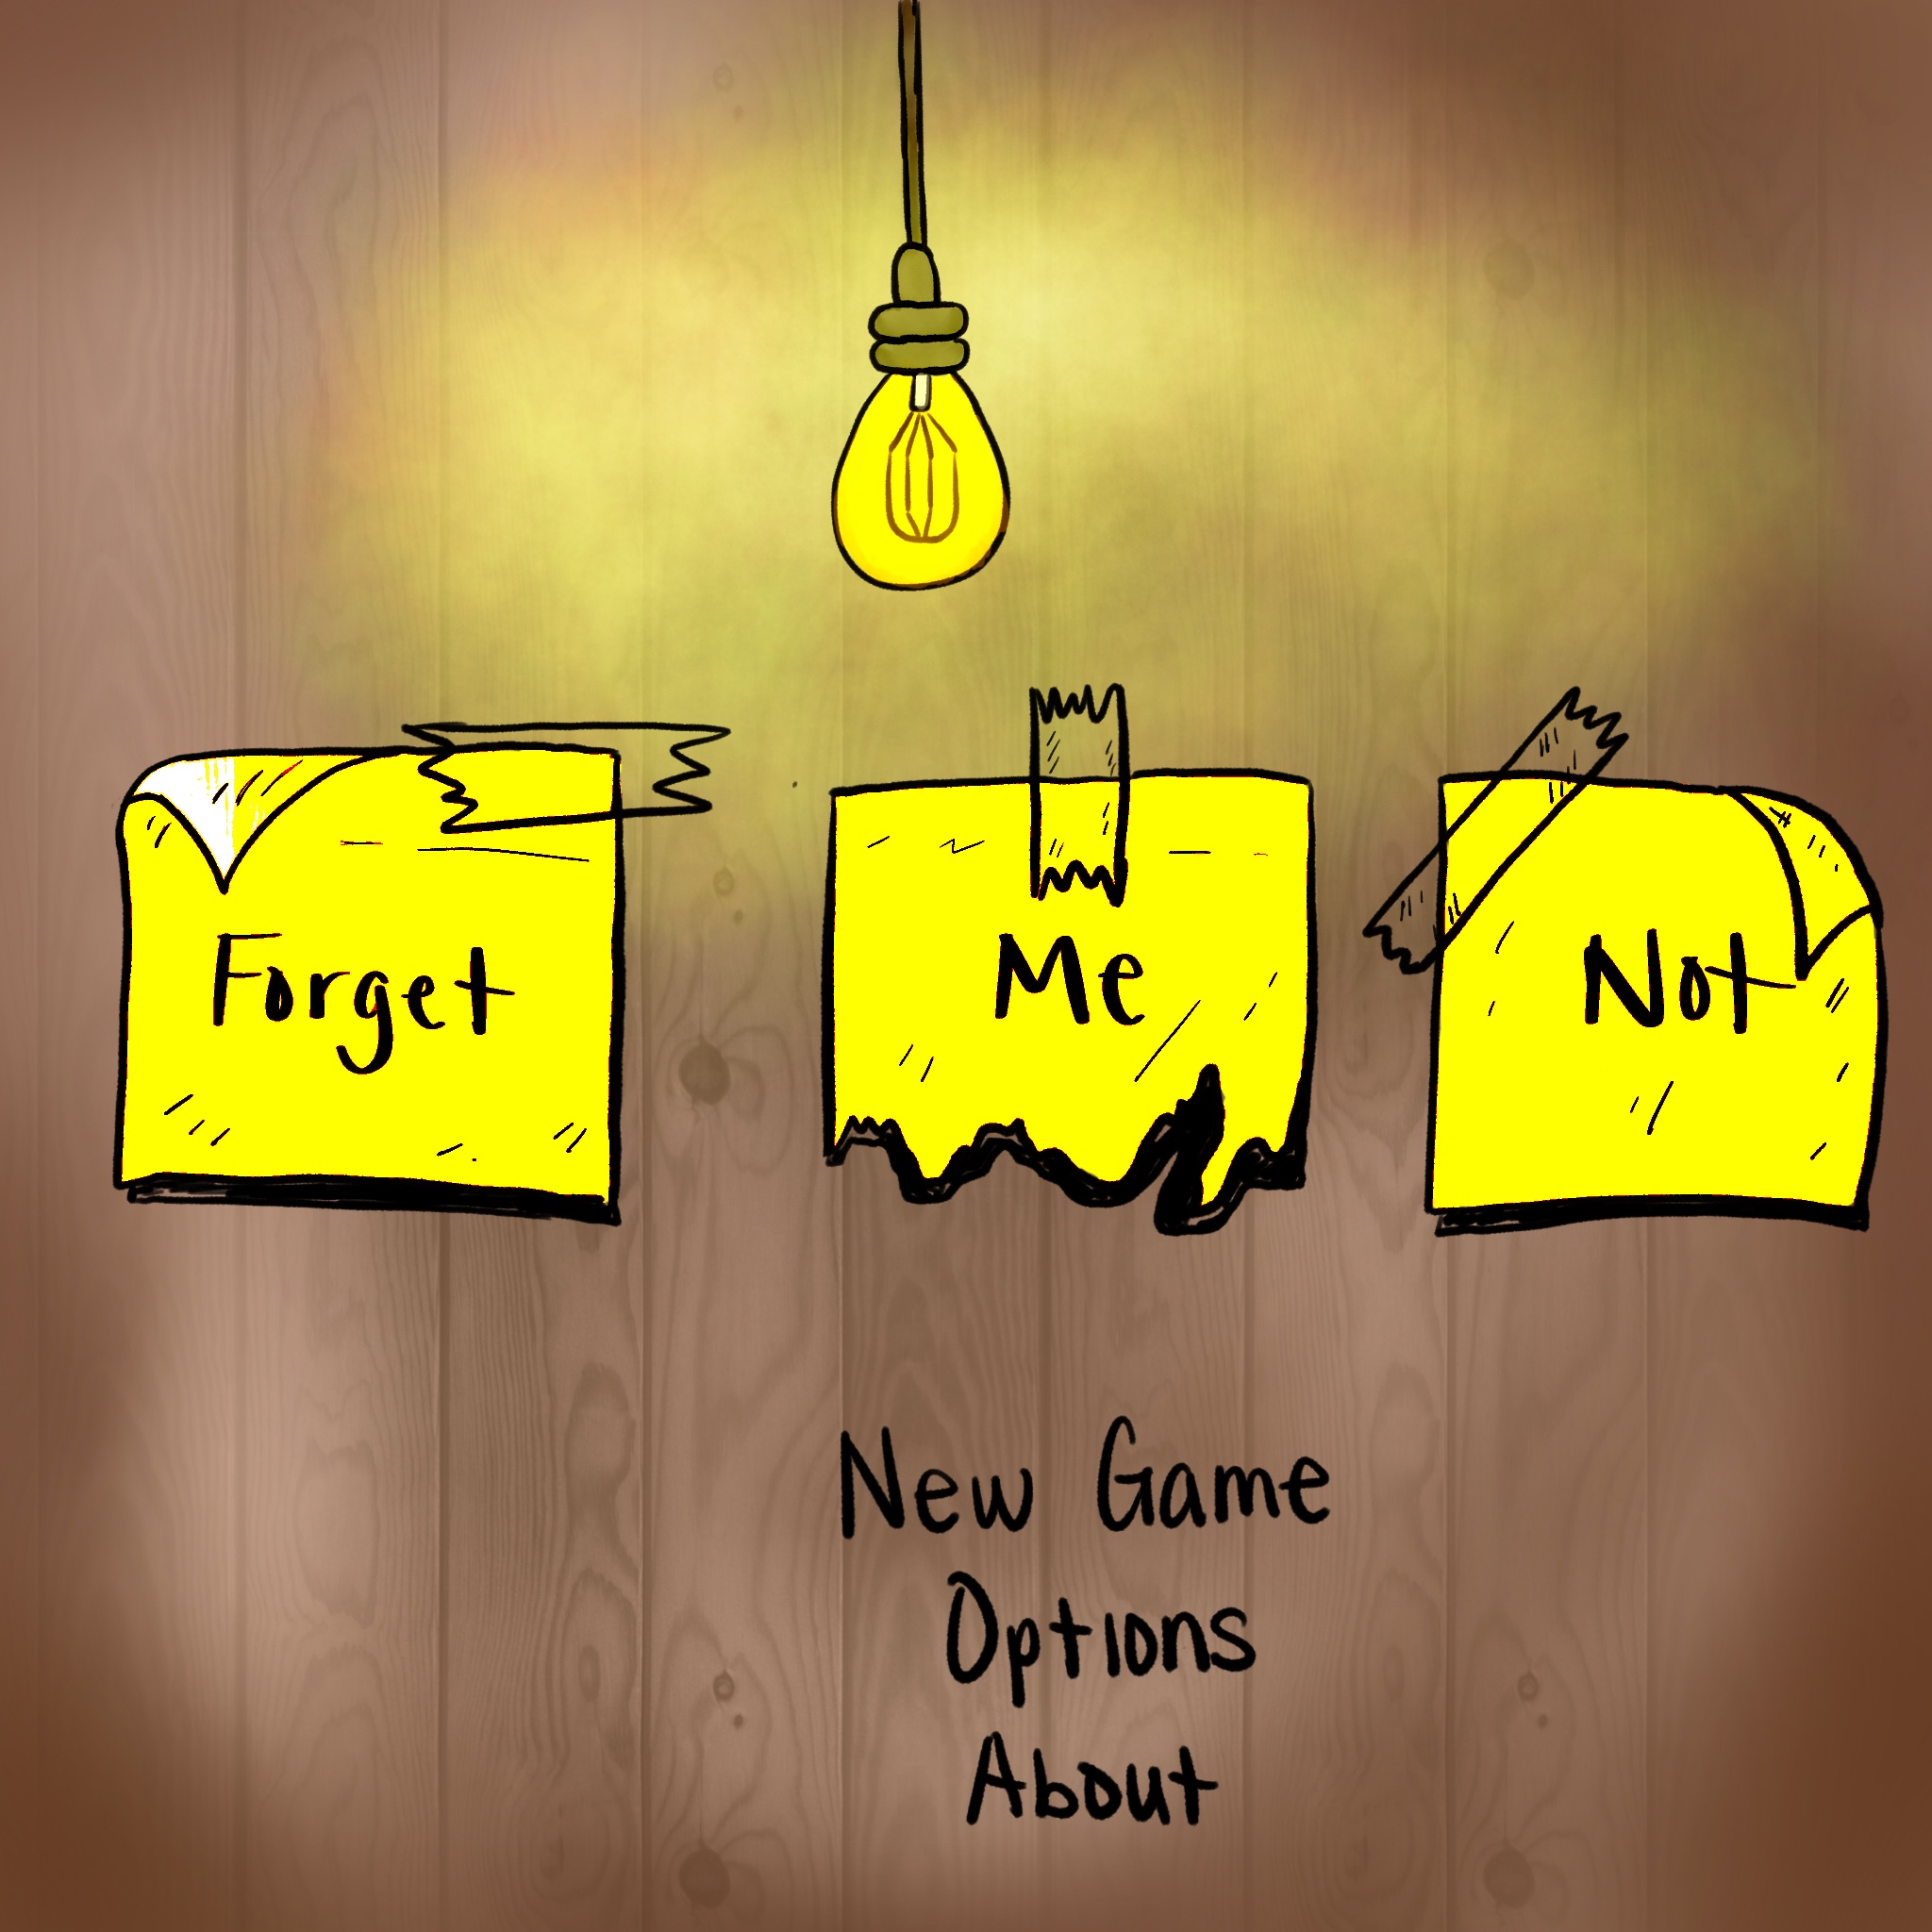 Forget Me Not
New Game
Options
About